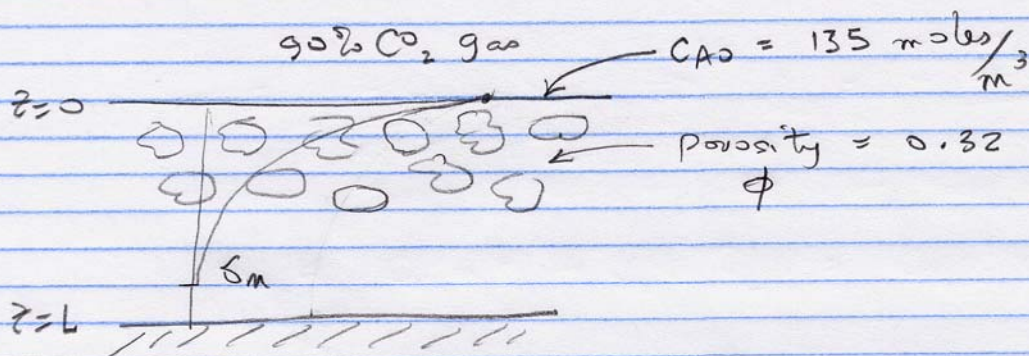 90% CO2 gas
CAO = 135 moles/m³
z=0
Porosity = 0.32
ϕ
δm
z=L